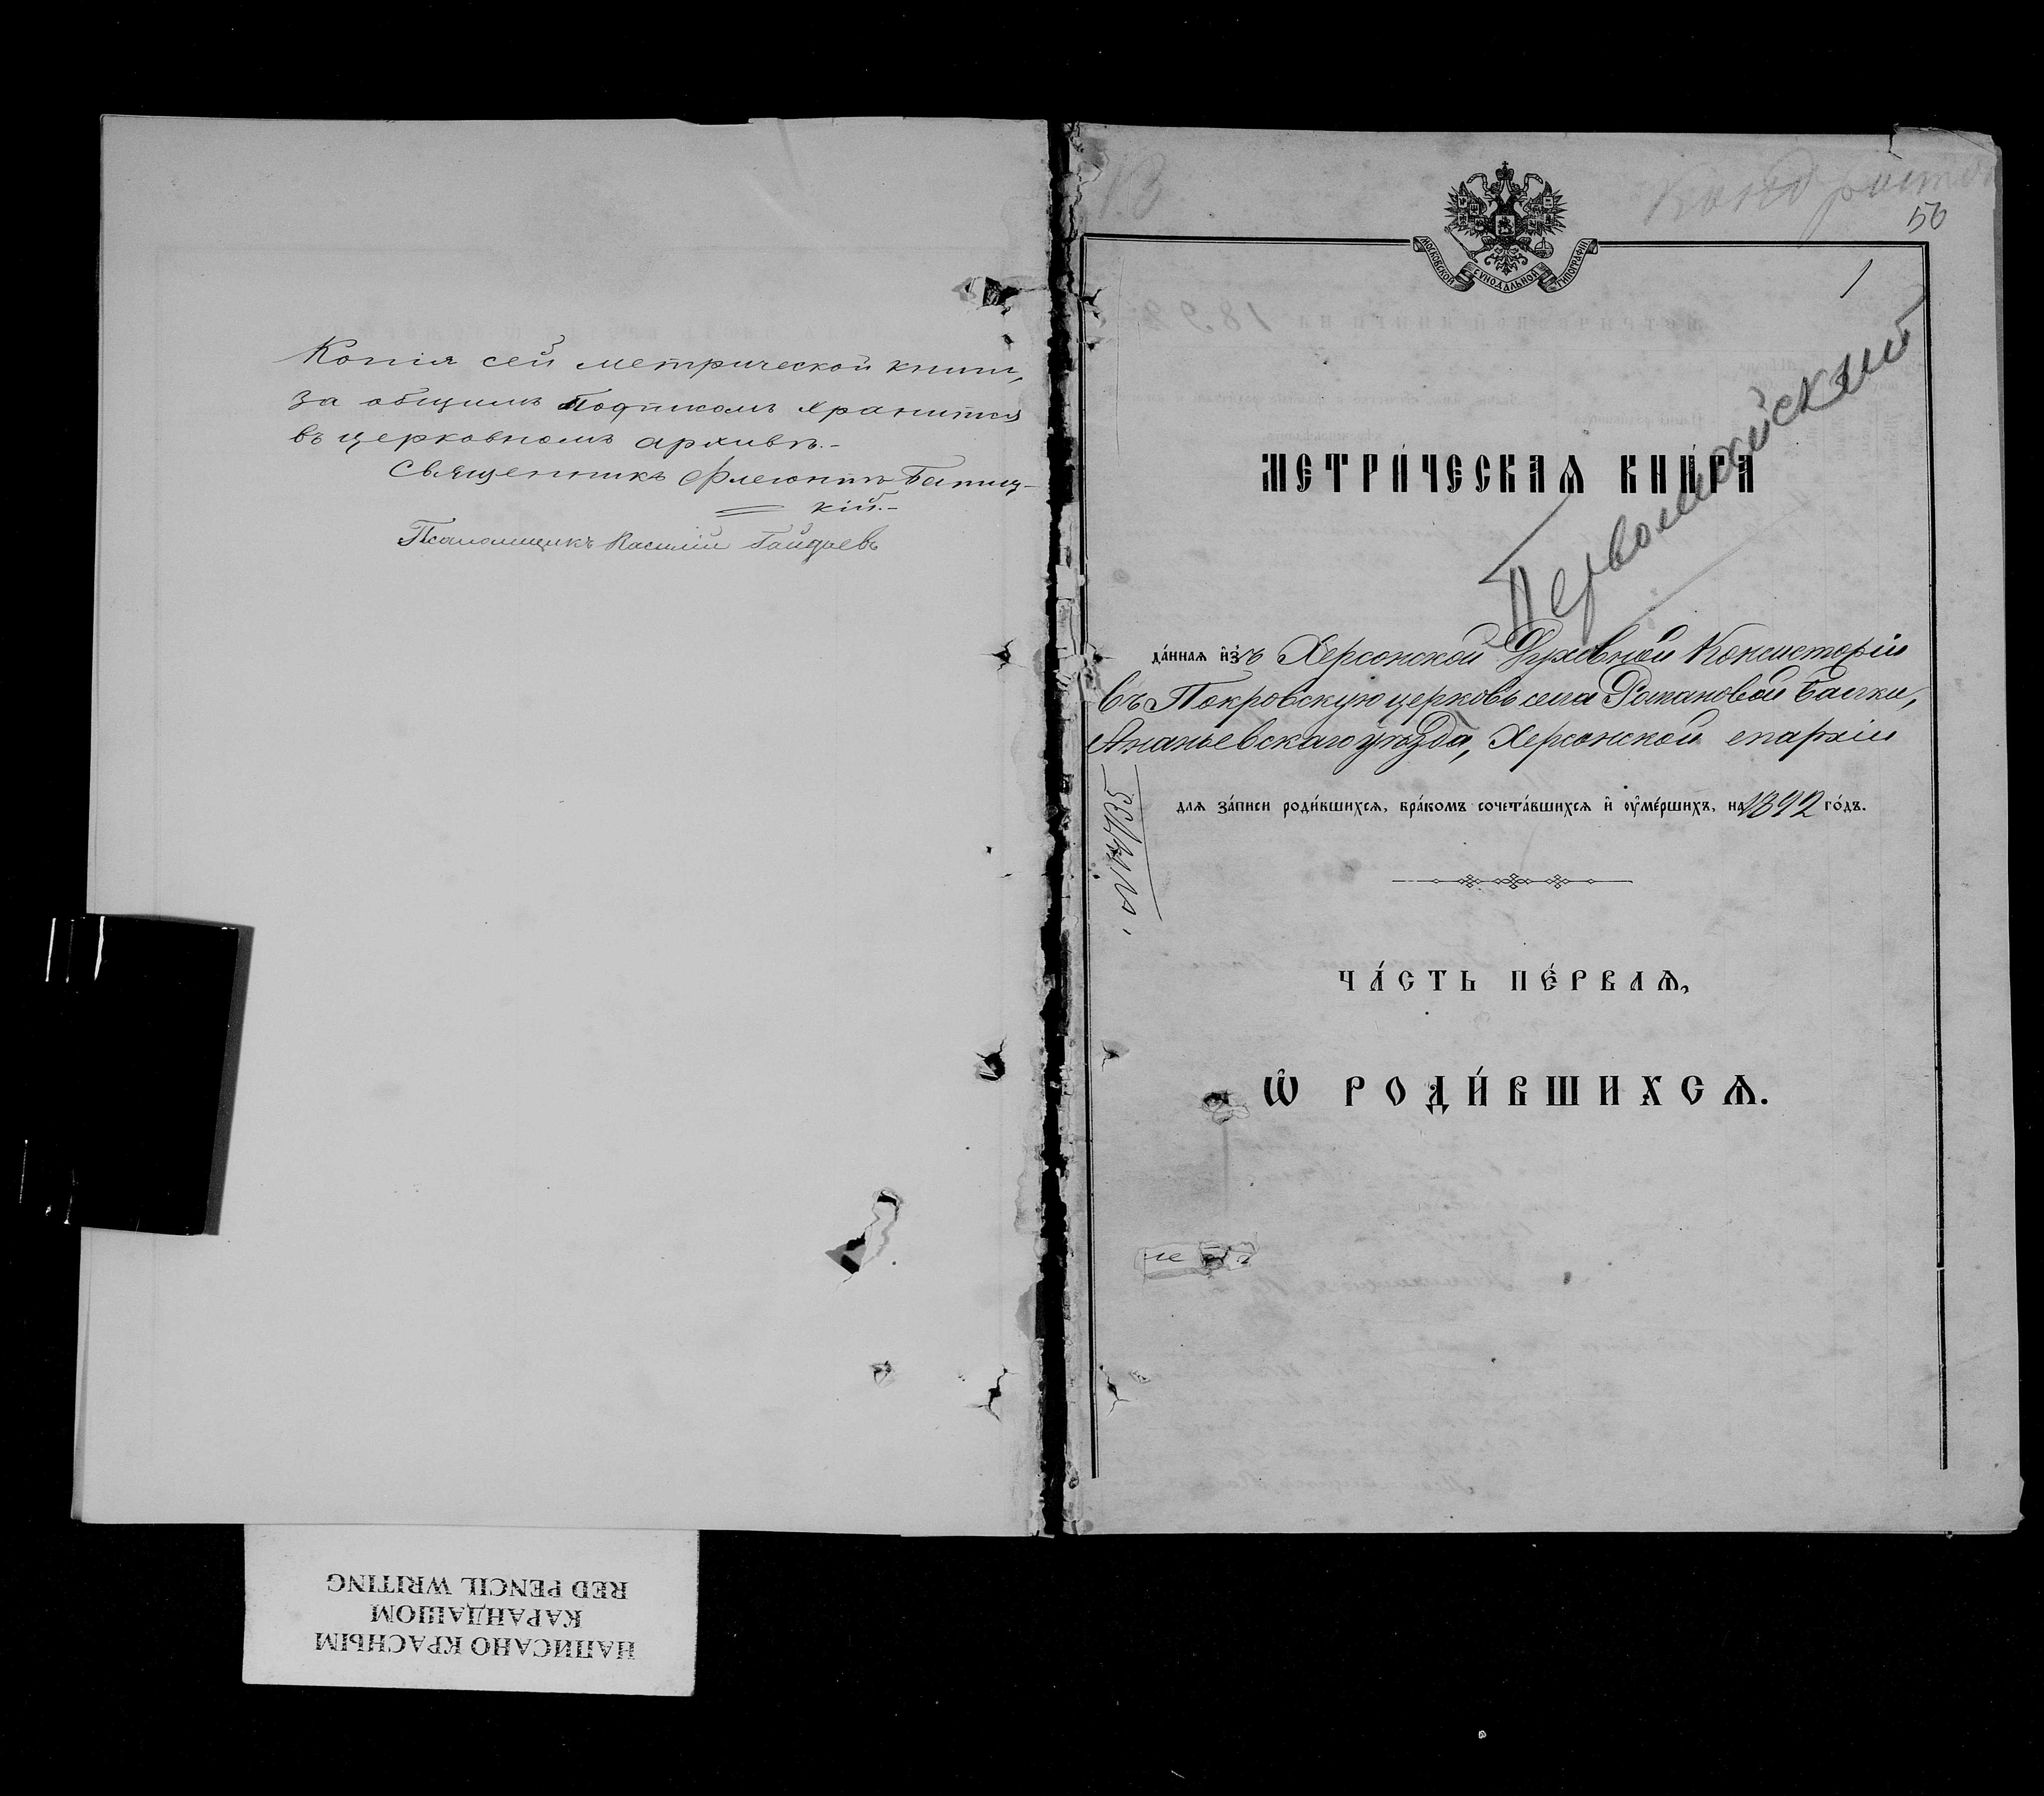 Копія сей метрической книги,
за общимъ подпискомъ хранится
въ церковномъ архивѣ.-
Священникъ Флегонтъ
кій.-
Псаломщикъ Василій Гайдаевъ
56
1
МОСКОВСКОЙ СѴНОДАЛЬНОЙ ТИПОГРАФІИ
Первомайский
МЕТРИ́ЧЕСКАѦ КНИ́ГА
да́нная и҆зъ Херсонской Духовной Консисторіи
въ Покровскую церковь села Романовой Балки,
Ананьевскаго уѣзда, Херсонской епархіи
для за́писи роди́вшихся, бра́комъ сочета́вшихся и҆ оу҆ме́ршихъ, на 1892 го́дъ.
ЧА́СТЬ ПЕ́РВАѦ,
Ѽ РОДИ́ВШИХСѦ.
НАПИСАНО КРАСНЫМ
КАРАНДАШОМ
RED PENCIL WRITING